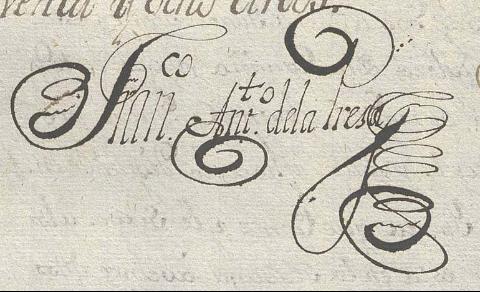 venta y ocho años.
Fran.co Ant.to de la Presa